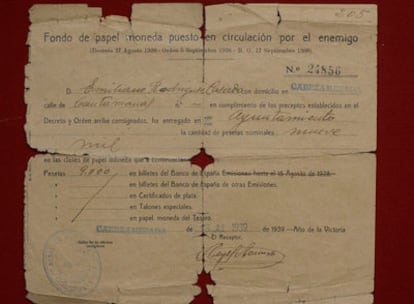 205
Fondo de papel moneda puesto en circulación por el enemigo
(Decreto 27 Agosto 1938 - Orden 5 Septiembre 1938 - B. O. 12 Septiembre 1938)
N.º 24856
D. Emiliano Rodriguez con domicilio en
calle de en cumplimiento de los preceptos establecidos en el
Decreto y Orden arriba consignados, ha entregado en Ayuntamiento
la cantidad de pesetas nominales nueve
mil
en las clases de papel moneda que a continuación
Pesetas 9.000 en billetes del Banco de España Emisiones hasta 18 de 1936.
» en billetes del Banco de España de otras Emisiones.
» en Certificados de plata.
» en Talones especiales.
» en papel moneda del Tesoro.
1939 de 1939 - Año de la Victoria
El Receptor,